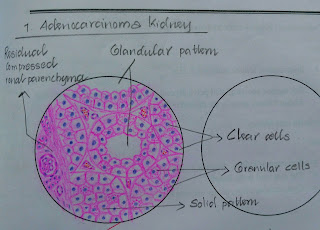 1. Adenocarcinoma kidney
Glandular pattern
Residual
compressed
renal parenchyma
Clear cells
Granular cells
Solid pattern